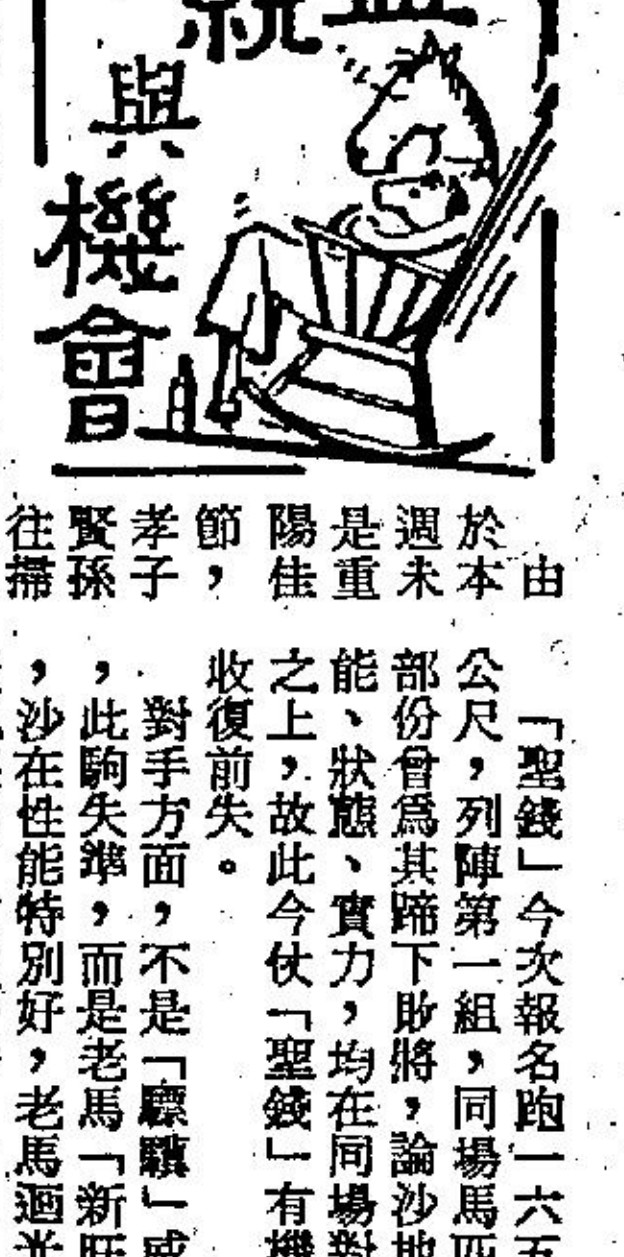 統
與
機
會
由
於本
週未
是重
陽佳
節，
孝子
賢孫
往掃
「聖錢」今次報名跑一六五
公尺，列陣第一組，同場馬匹
部份曾爲其蹄下敗將，論沙地
能、狀態、實力，均在同場對
之上，故此今仗「聖錢」有機
收復前失。
對手方面，不是「驃驥」威
，此駒失準，而是老馬「新旺
，沙在性能特別好，老馬迴光